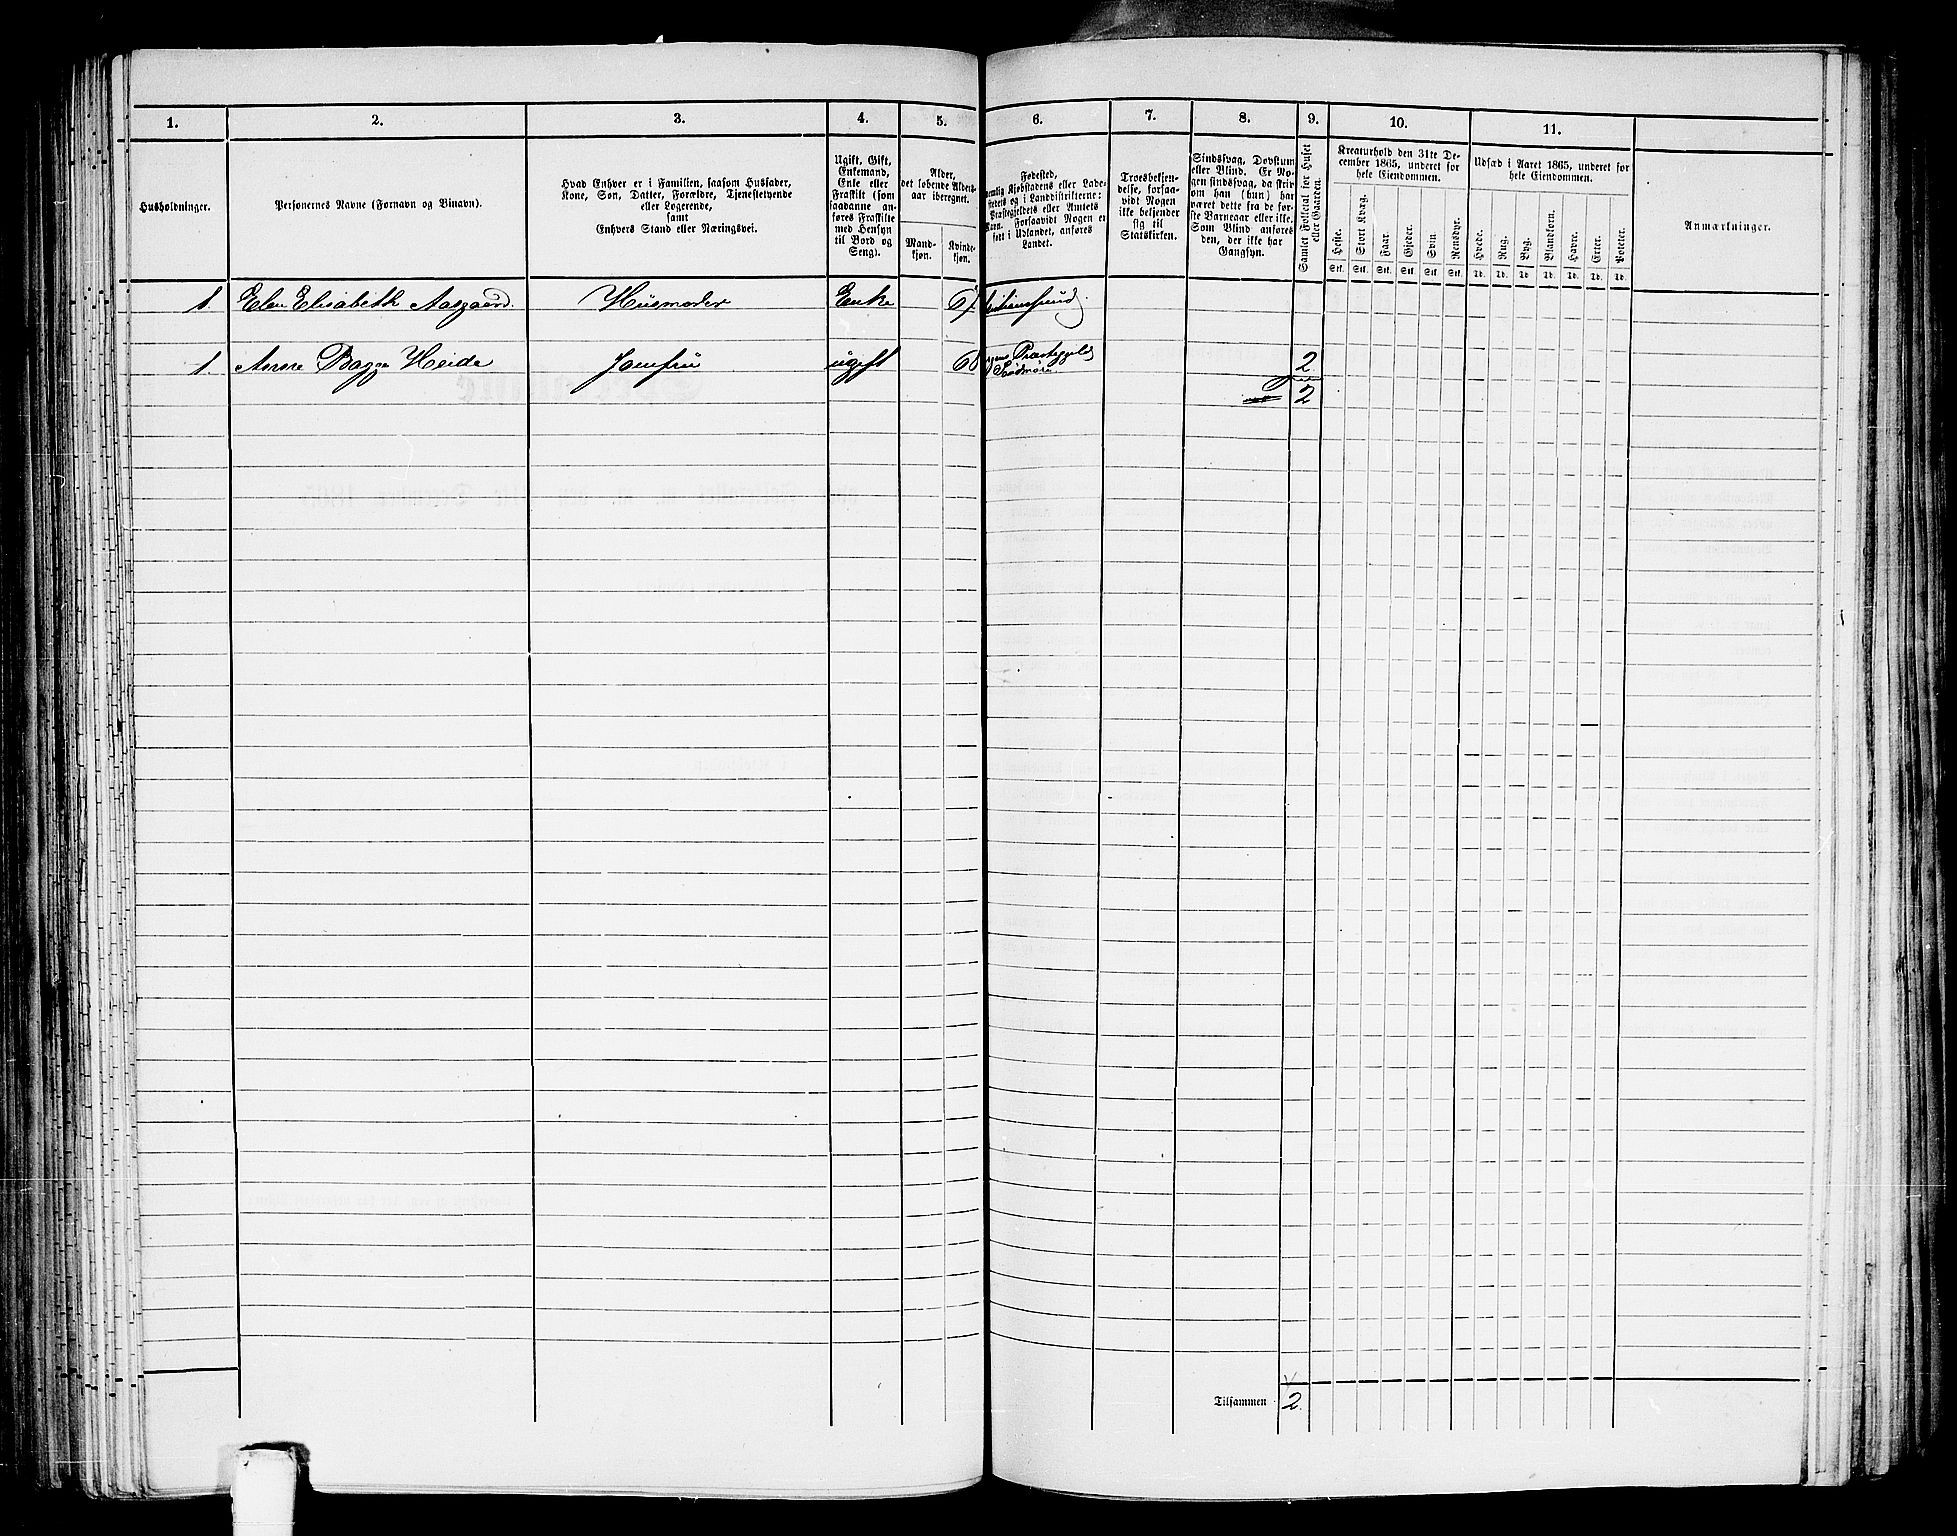 1. 2. 3. 4. 5. 6. 7. 8. 9. 10. 11.
Husholdninger.
Personernes Navne (Fornavn og Binavn).
Hvad Enhver er i Familien, saasom Husfader,
Kone, Søn, Datter, Forældre, Tjenestetyende
eller Logerende,
samt
Enhvers Stand eller Næringsvei.
Ugift, Gift,
Enkemand,
Enke eller
Fraskilt (som
saadanne an-
føres Fraskilte
med Hensyn
til Bord og
Seng).
Alder,
det løbende Alders-
aar iberegnet.
Mand-
kjøn.
Kvinde-
kjøn.
Fødested,
nemlig Kjøbstadens eller Lade-
stedets og i Landdistrikterne:
Præstegjeldets eller Amtets
Navn. Forsaavidt Nogen er
født i Udlandet, anføres
Landet.
Troesbekjen-
delse, forsaa-
vidt Nogen
ikke bekjender
sig til
Statskirken.
Sindssvag, Døvstum
eller Blind. Er No-
gen sindssvag, da skriv
om han (hun) har
været dette fra de før-
ste Barneaar eller ikke.
Som Blind anføres
den, der ikke har
Gangsyn.
Samlet Folketal for Huset
eller Gaarden.
Kreaturhold den 31te De-
cember 1865, underet for
hele Eiendommen.
Heste.
Stort Kvæg.
Faar.
Gjeder.
Svin.
Rensdyr.
Stk. Stk. Stk. Stk. Stk. Stk.
Udsæd i Aaret 1865, underet for
hele Eiendommen.
Hvede.
Rug.
Byg.
Blandkorn.
Havre.
Erter.
Poteter.
Td. Td. Td. Td. Td. Td. Td.
Anmærkninger.
1. Elen Elisabeth Aasgaard. Huusmoder Enke
1. Anne Bagge Heide Jomfru ugift Præstegjeld 2
Søndmøre
2
Tilsammen 2.